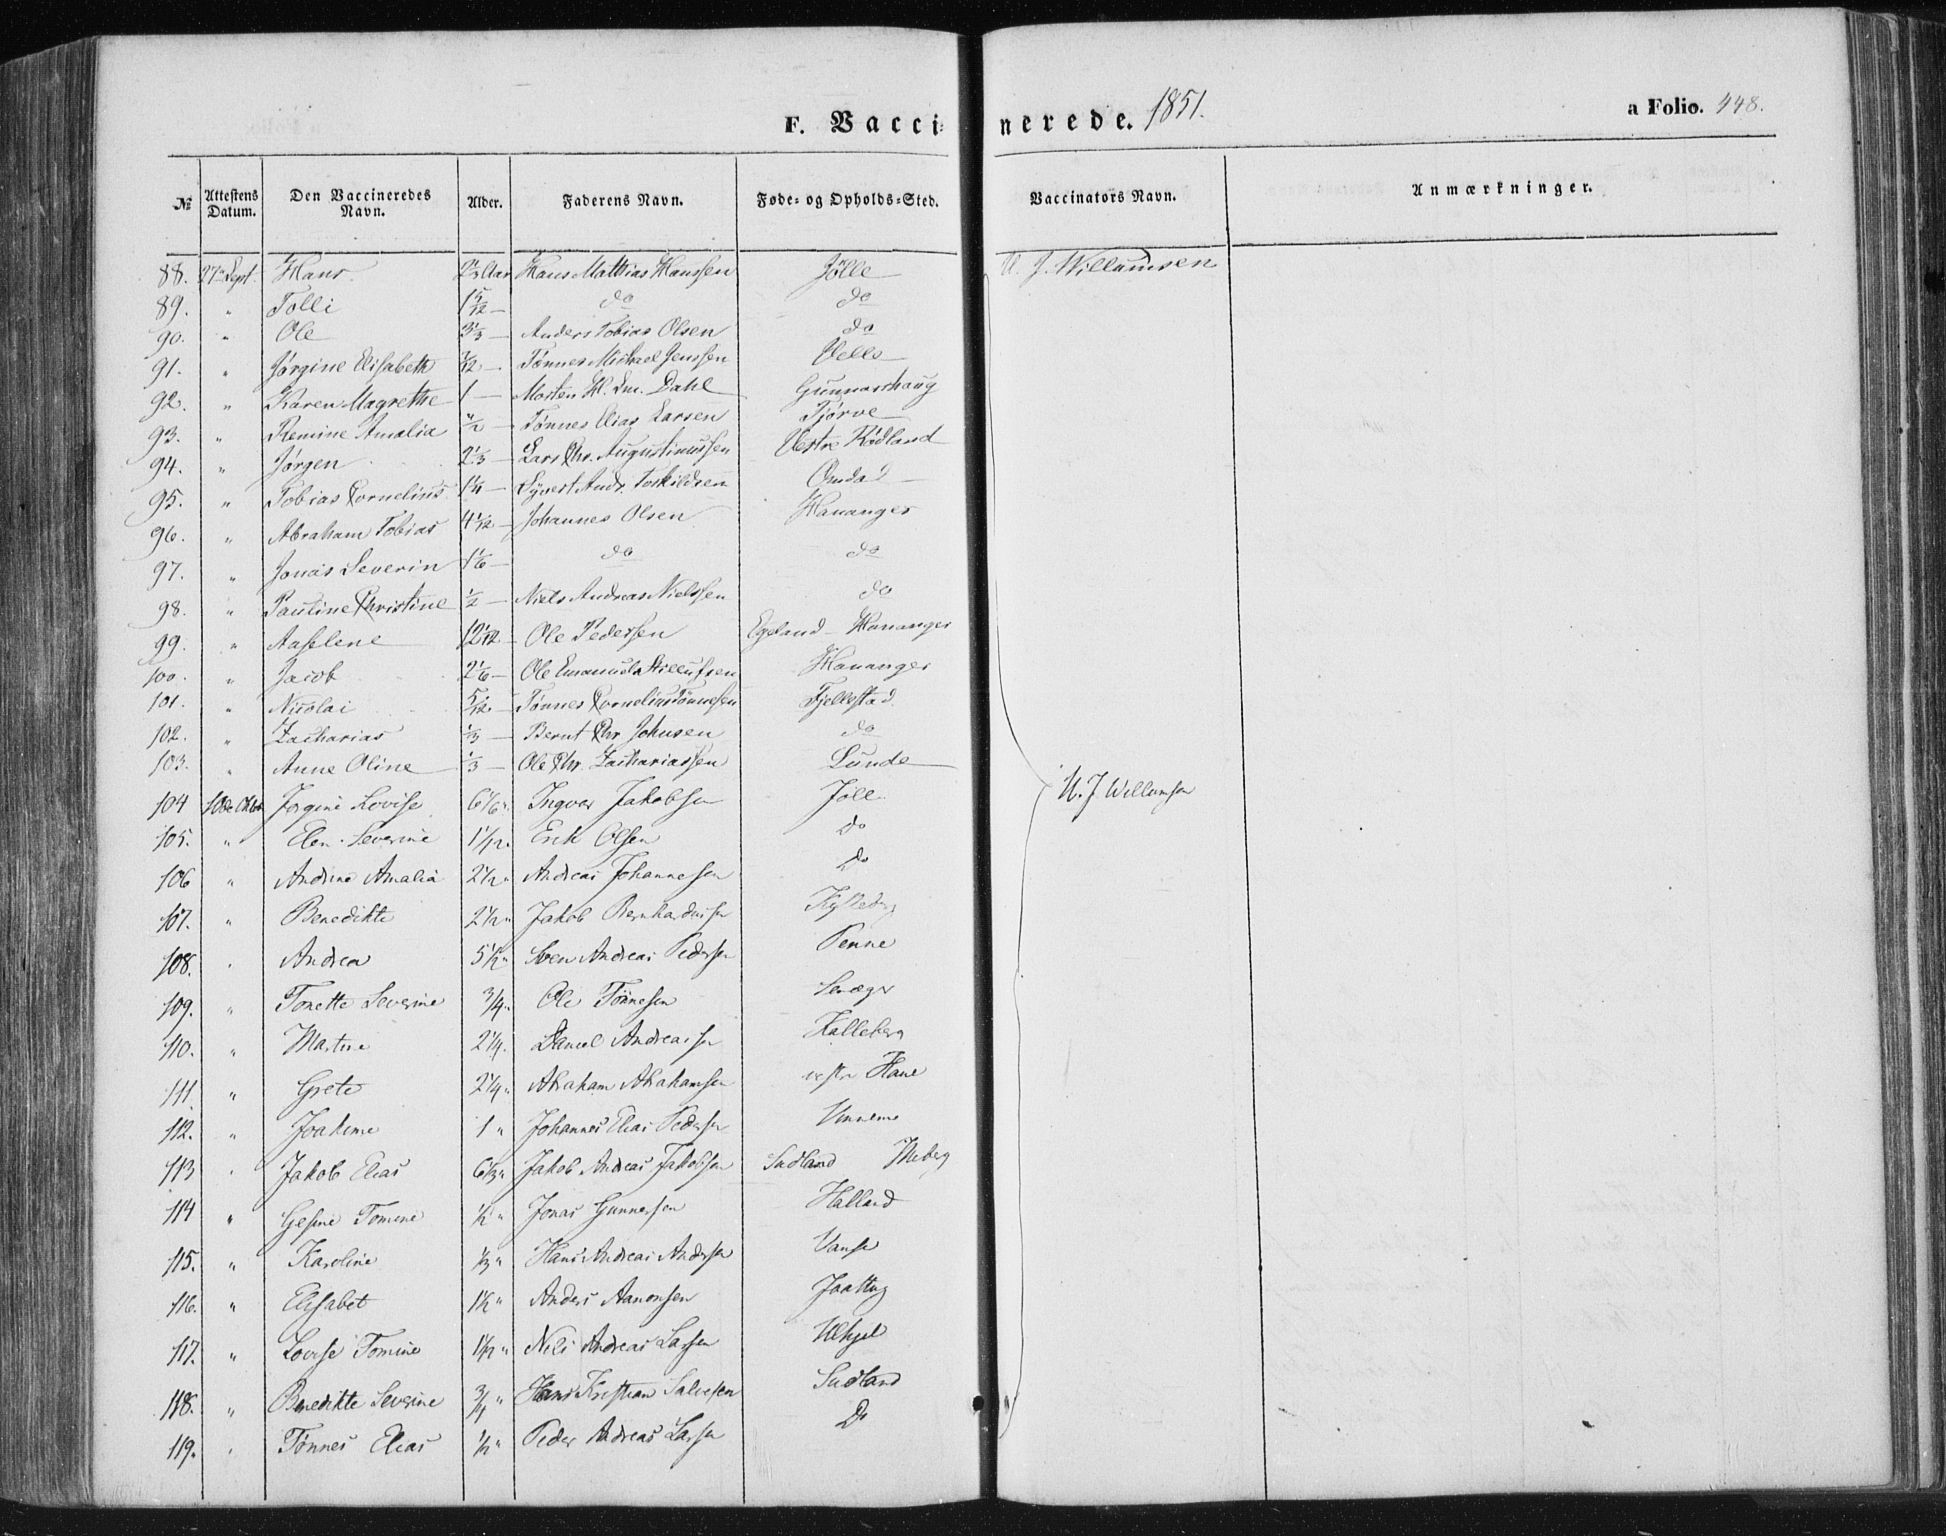 F. Vaccinerede. 1851.
a Folio. 448.
№ Attestens Datum. Den Vaccineredes Navn. Alder. Faderens Navn. Føde- og Opholds-Sted. Vaccinators Navn. Anmærkninger.
88. 27de Sept. Hans Aar Hans Mathias Hanssen Jölle U. J. Willumsen
89. " Tolli 1 5/12 — do do
90. " Ole 3 1/3 — Anders Tobias Olsen do
91. " Jørgine Elisabeth 7/12 — Tønnes Michael Jenssen Velle
92. " Karen Magrethe 1 — Morten Dahl Gunnarshaug
93. " Remine Amalia 1/2 — Tønnes Elias Larsen Tjørve
94. " Jørgen 2 1/3 — Lars Chr. Augustinussen Vestre Rödland
95. " Tobias Cornelius 1 1/4 — Syvert Andr. Torkildsen Omdal
96. " Abraham Tobias 4 1/12 — Johannes Olsen Hananger
97. " Jonas Severin 1 1/6 — do do
98. " Pauline Christine 1/2 — Niels Andreas Nielssen do
99. " Aaselene — Ole Pederssen Egeland Hananger
100. " Jacob 2 1/6 — Ole Emanuel Hananger
101. " Nicolai 5/12 — Tønnes Cornelius Tönnessen Fjellestad
102. " Zacharias 1/3 — Bernt Chr Johnsen do
103. " Anne Oline 1/3 — Ole Chr. Zachariassen Lunde
104 10de Oktbr Jørgine Lovise 6 1/6 " Ingver Jakobsen Jölle U. J. Willumsen
105. " Elen Severine 1 1/12 " Erik Olsen Do
106 " Andrine Amalia 2 1/2 " Andreas Johannesen Do
107. " Benedikte 2 1/2 " Jakob Bernhardussen
108. " Andrea 5 1/2 " Sven Andreas Pedersen Penne
109. " Tonette Severine 3/4 " Ole Tönnesen
110. " Martine 2 1/4 " Daniel Andreassen Kalleberg
111. " Grete 2 1/4 " Abraham Abrahamsen vestre Haue
112. " Joakime 1 " Johannes Elias Pedersen Vinneme
113 " Jakob Elias " Jakob Andreas Jakobsen Sudland Meberg
114 " Gesine Tomine 1/2 " Jonas Gunnersen Halland
115. " Karoline 1/3 " Hans Andreas Andersen Vanse
116. " Elisabet 1 1/2 " Anders Aanonsen Jaattog
117. " Lovise Tomine 1 1/12 " Nils Andreas Larsen Ulhjel
118. " Benedikte Severine 3/4 " Hans Kristian Salvesen Sudland
119. " Tønnes Elias 1/2 " Peder Andreas Larsen Do